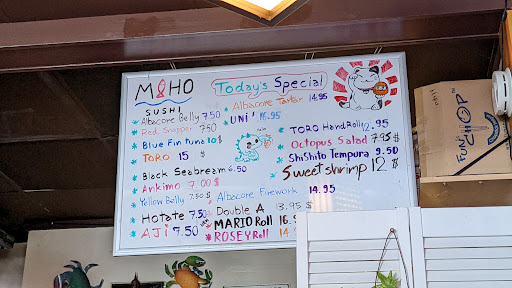 MIHO
SUSHI
Today's Special
Albacore Belly 7.50
Red Snapper 7.50
Blue Fin Tuna 10$
TORO 15 $
Black Seabream 6.50
Ankimo 7.00 $
Yellow Belly 7.50 $
Hotate 7.50
AJI 7.50
Albacore Tartar 14.95
UNI 16.95
Albacore Firework 14.95
Double A 13.95 $
MARIO Roll 16.
ROSEY Roll 14
TORO Hand Roll 12.95
Octopus Salad 7.95 $
ShiShito Tempura 9.50
Sweet shrimp 12 $
FUN CHOP